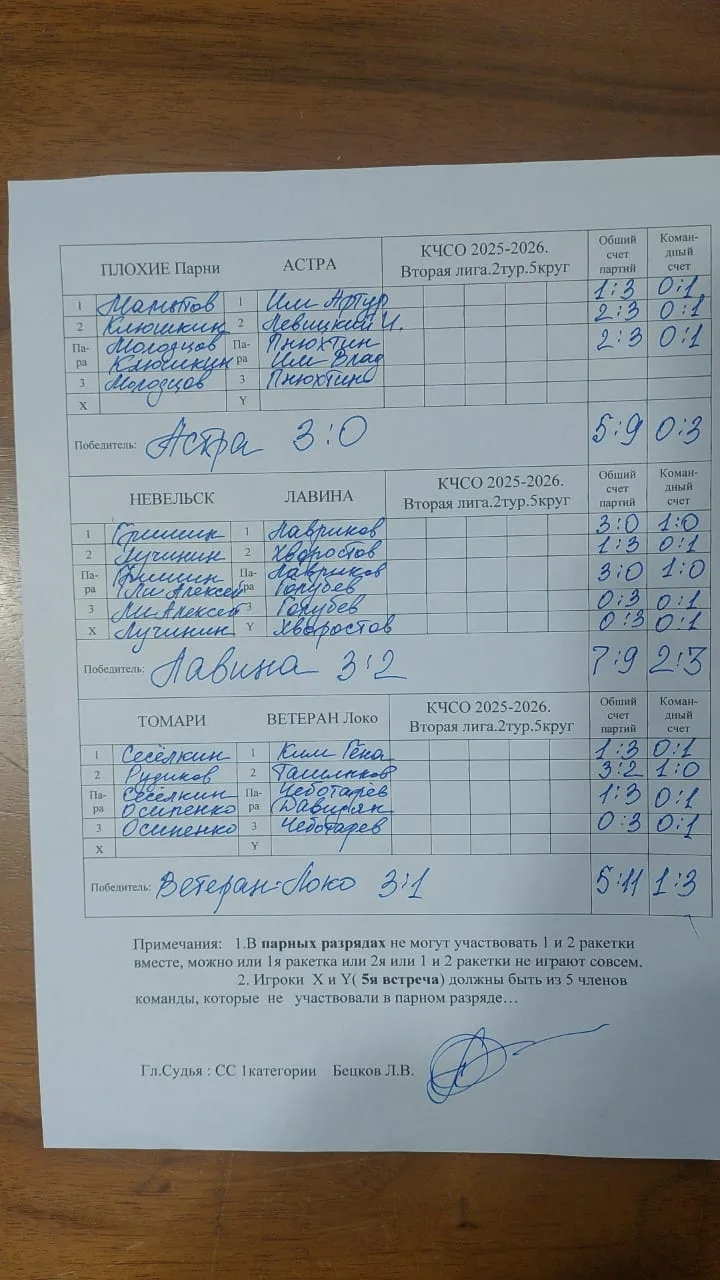 ПЛОХИЕ Парни АСТРА КЧСО 2025-2026. Вторая лига.2тур.5круг Обший счет партий Коман-дный счет
1 Маматов 1 Ким Артур 1:3 0:1
2 Клюшкин 2 Левицкий И. 2:3 0:1
Па-ра Молодцов Па-ра Пнюхтин 2:3 0:1
Клюшкин Ким Влад
3 Молодцов 3 Пнюхтин
X Y
Победитель: Астра 3:0 5:9 0:3
НЕВЕЛЬСК ЛАВИНА КЧСО 2025-2026. Вторая лига.2тур.5круг Обший счет партий Коман-дный счет
1 Гришин 1 Лавриков 3:0 1:0
2 Лучинин 2 Хворостов 1:3 0:1
Па-ра Гришин Па-ра Лавриков 3:0 1:0
Ли Алексей Голубев
3 Ли Алексей 3 Голубев 0:3 0:1
X Лучинин Y Хворостов 0:3 0:1
Победитель: Лавина 3:2 7:9 2:3
ТОМАРИ ВЕТЕРАН Локо КЧСО 2025-2026. Вторая лига.2тур.5круг Обший счет партий Коман-дный счет
1 Сесёлкин 1 Ким Гена 1:3 0:1
2 Рудиков 2 3:2 1:0
Па-ра Сесёлкин Па-ра Чеботарёв 1:3 0:1
Осипенко Давидян
3 Осипенко 3 Чеботарёв 0:3 0:1
X Y
Победитель: Ветеран-Локо 3:1 5:11 1:3
Примечания: 1.В парных разрядах не могут участвовать 1 и 2 ракетки
вместе, можно или 1я ракетка или 2я или 1 и 2 ракетки не играют совсем.
2. Игроки X и Y( 5я встреча) должны быть из 5 членов
команды, которые не участвовали в парном разряде…
Гл.Судья : СС 1категории Бецков Л.В.